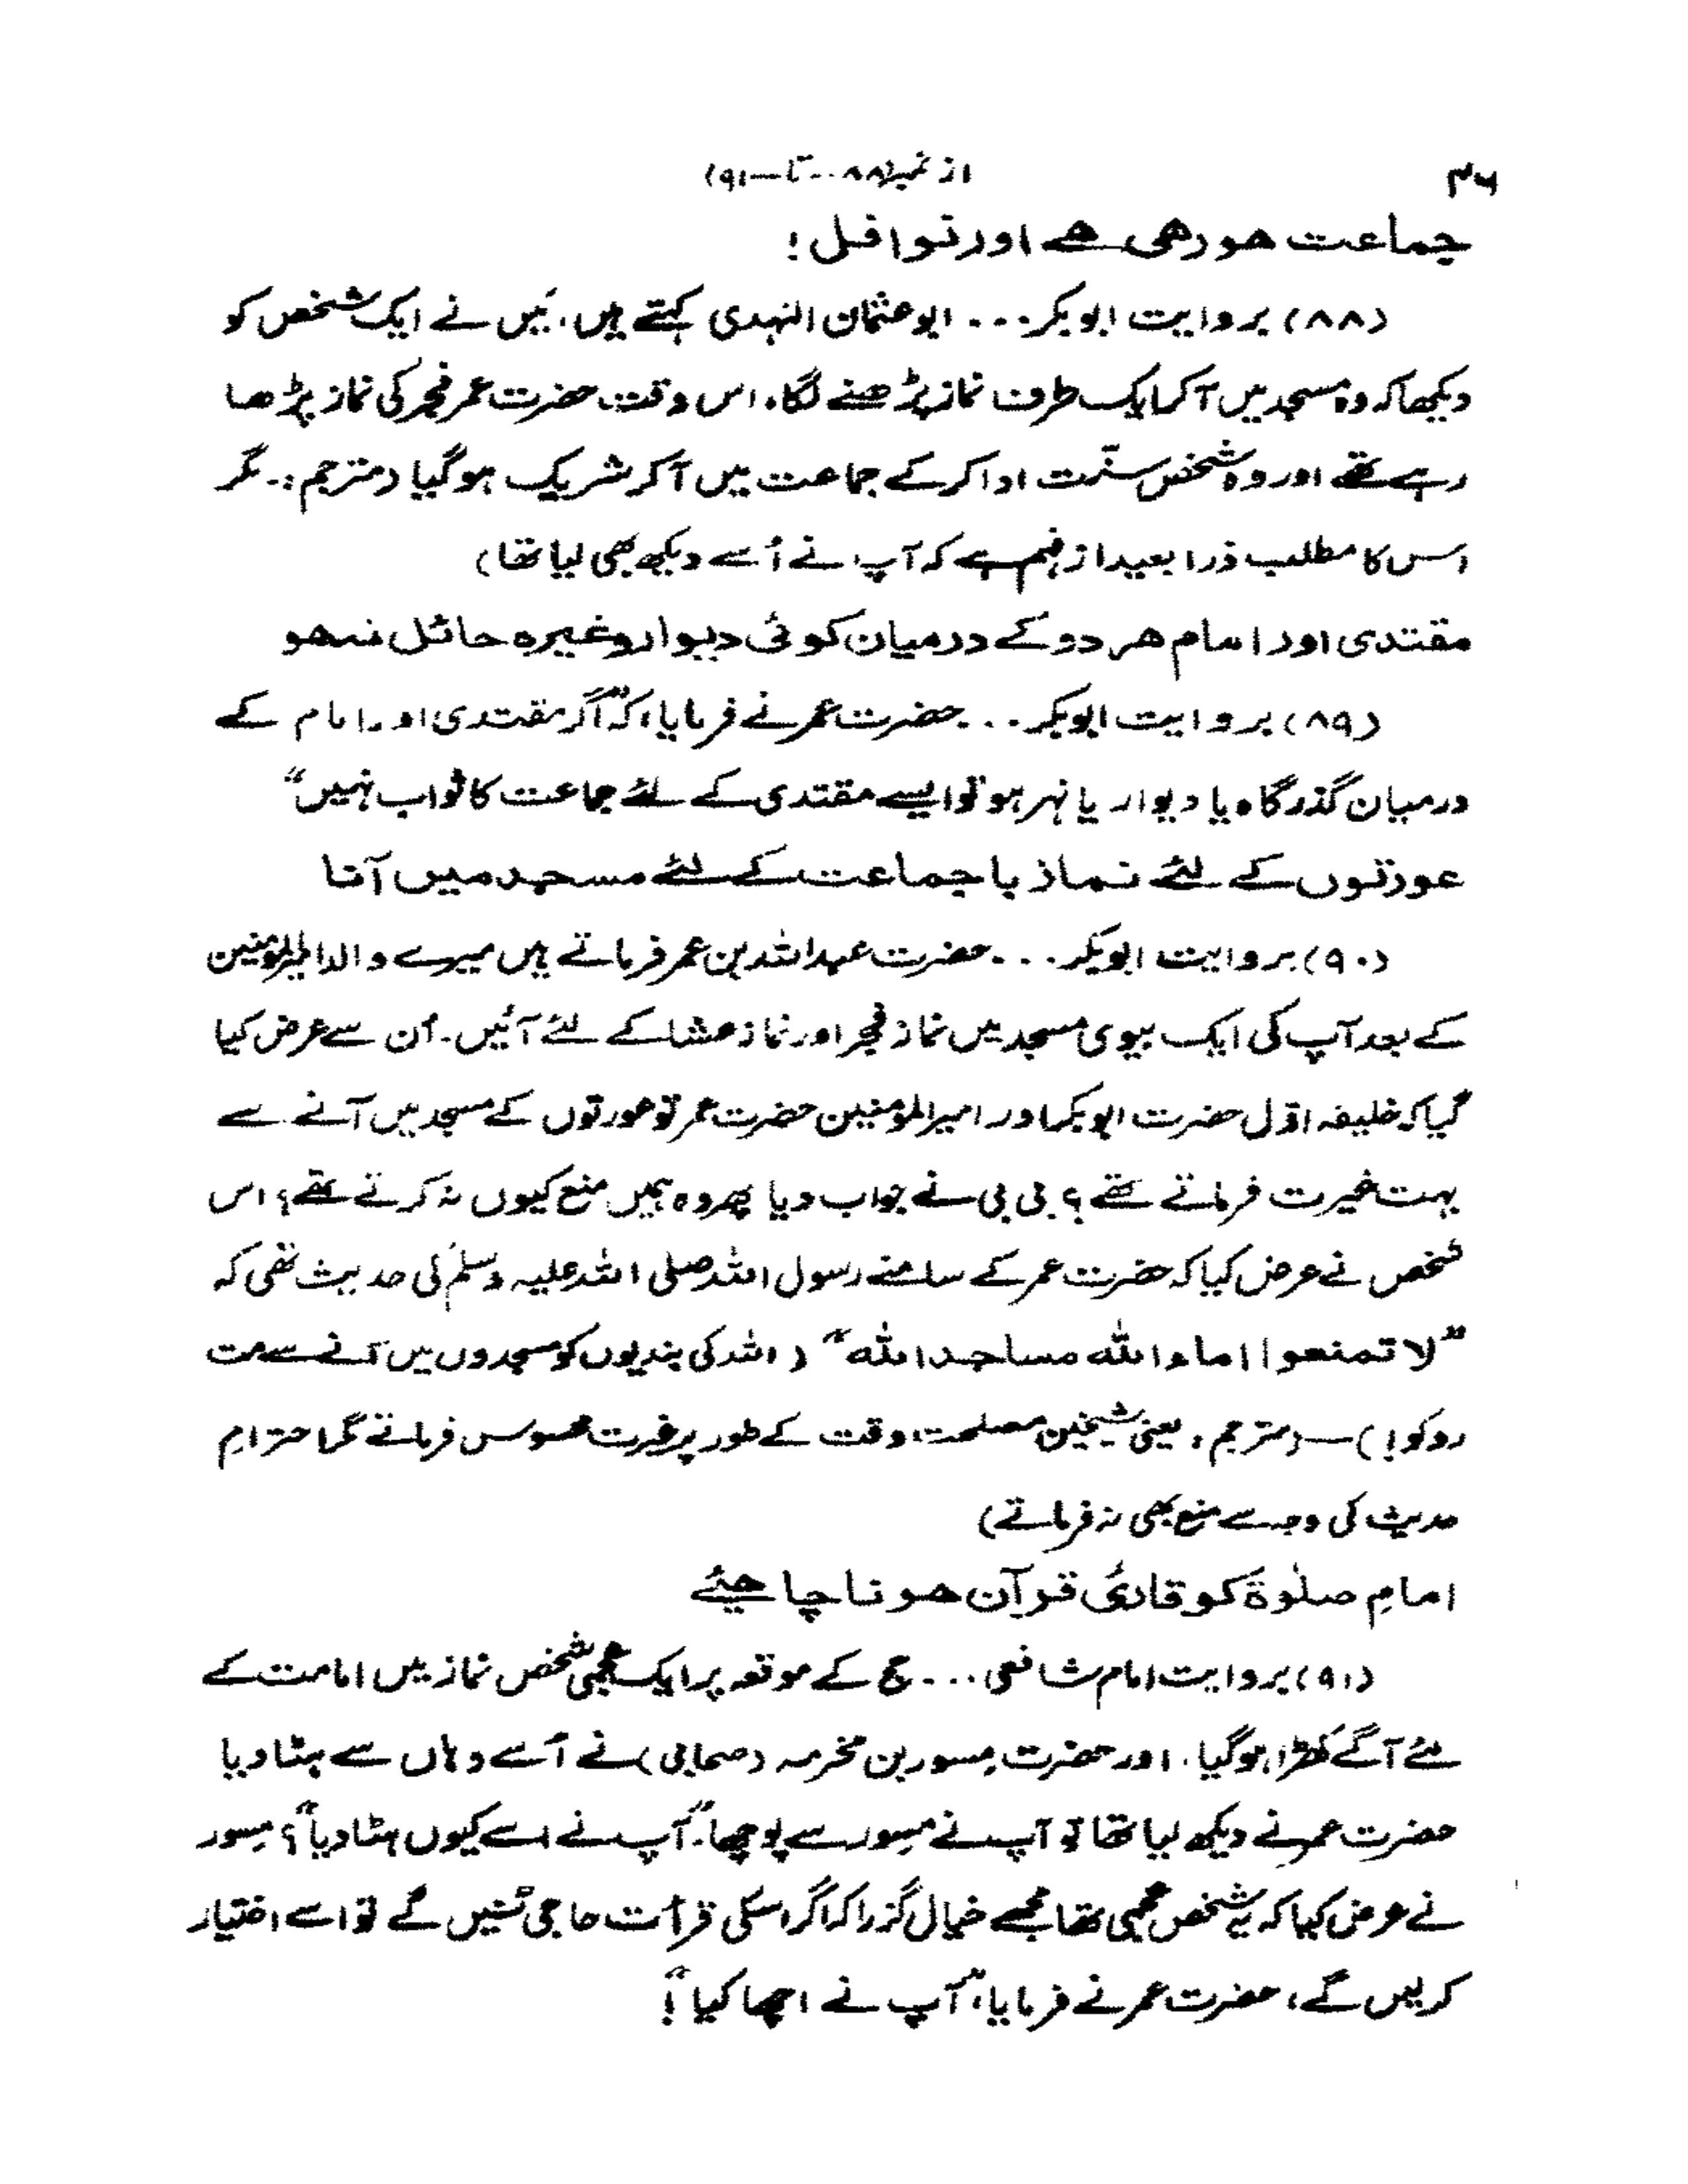 ۴۶
از نمبر (۸۸ ۔۔ تا ۔ ۹۱)
جماعت ھو رھی ھے اور نوافل!
(۸۸) بروایت ابوبکر ۔۔۔ ابو عثمان النہدی کہتے ہیں، میں نے ایک شخص کو
دیکھا کہ وہ مسجد میں آکر ایک طرف نماز پڑھنے لگا، اس وقت حضرت عمر فجر کی نماز پڑھا
رہے تھے اور وہ شخص سنّت ادا کر کے جماعت میں آکر شریک ہوگیا (مترجم :۔ مگر
اس کا مطلب ذرا بعید از فہم ہے کہ آپ نے اُسے دیکھ بھی لیا تھا)
مقتدی اور امام ھر دو کے درمیان کوئی دیوار وغیرہ حائل نہ ھو
(۸۹) بروایت ابوبکر ۔۔۔ حضرت عمر نے فرمایا، کہ "اگر مقتدی اور امام کے
درمیان گذرگاہ یا دیوار یا نہر ہو تو ایسے مقتدی کے لئے جماعت کا ثواب نہیں"
عورتوں کے لئے نماز با جماعت کے لئے مسجد میں آنا
(۹۰) بروایت ابوبکر ۔۔۔ حضرت عبداللہ بن عمر فرماتے ہیں میرے والد امیر المؤمنین
کے بعد آپ کی ایک بیوی مسجد میں نماز فجر اور نماز عشا کے لئے آئیں۔ اُن سے عرض کیا
گیا کہ خلیفہ اوّل حضرت ابوبکر اور امیر المؤمنین حضرت عمر تو عورتوں کے مسجد میں آنے سے
بہت غیرت فرماتے تھے؟ بی بی نے جواب دیا پھر وہ ہمیں منع کیوں نہ کرتے تھے؟ اس
شخص نے عرض کیا کہ حضرت عمر کے سامنے رسول اللہ صلی اللہ علیہ وسلم کی حدیث تھی کہ
"لا تمنعوا اماء اللہ مساجد اللہ" (اللہ کی بندیوں کو مسجدوں میں آنے سے مت
روکو!) — (مترجم، یعنی شیخین مصلحت وقت کے طور پر غیرت محسوس فرماتے مگر احترامِ
حدیث کی وجہ سے منع بھی نہ فرماتے)
امامِ صلٰوة کو قاریٔ قرآن ھونا چاھیٔے
(۹۱) بروایت امام شافعی ۔۔۔ حج کے موقعہ پر ایک عجمی شخص نماز میں امامت کے
لئے آگے کھڑا ہوگیا، اور حضرت مِسور بن مخرمہ (صحابی) نے اُسے وہاں سے ہٹا دیا
حضرت عمر نے دیکھ لیا تھا تو آپ نے مِسور سے پوچھا۔ "آپ نے اسے کیوں ہٹا دیا"؟ مِسور
نے عرض کیا کہ یہ شخص عجمی تھا مجھے خیال گزرا کہ اگر اسکی قرأت حاجی سُنیں گے تو اسے اختیار
کرلیں گے، حضرت عمر نے فرمایا، "آپ نے اچھا کیا"!